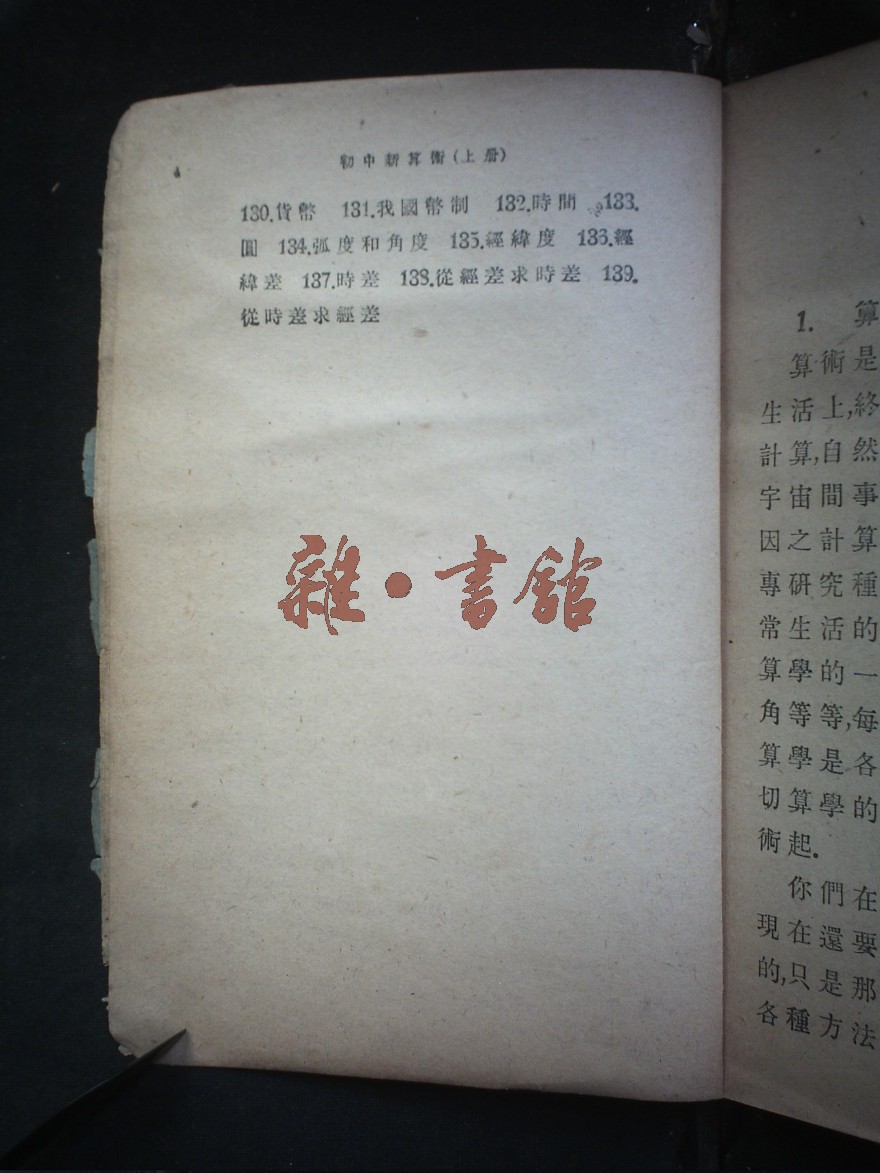 4
初中新算術(上册)
130.貨幣 131.我國幣制 132.時間 133.
圓 134.弧度和角度 135.經緯度 136.經
緯差 137.時差 138.從經差求時差 139.
從時差求經差
雜·書館
1. 算
算術是
生活上,終
計算,自然
宇宙間事
因之計算
專研究種
常生活的
算學的一
角等等,每
算學是各
切算學的
術起.
你們在
現在還要
的,只是那
各種方法